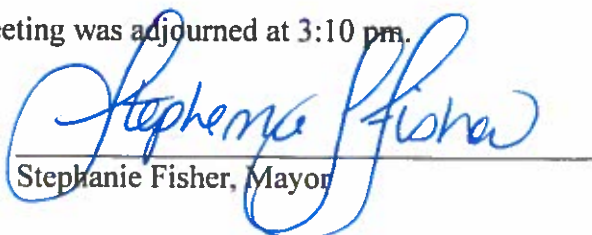 eeting was adjourned at 3:10 pm.
Stephanie Fisher
Stephanie Fisher, Mayor